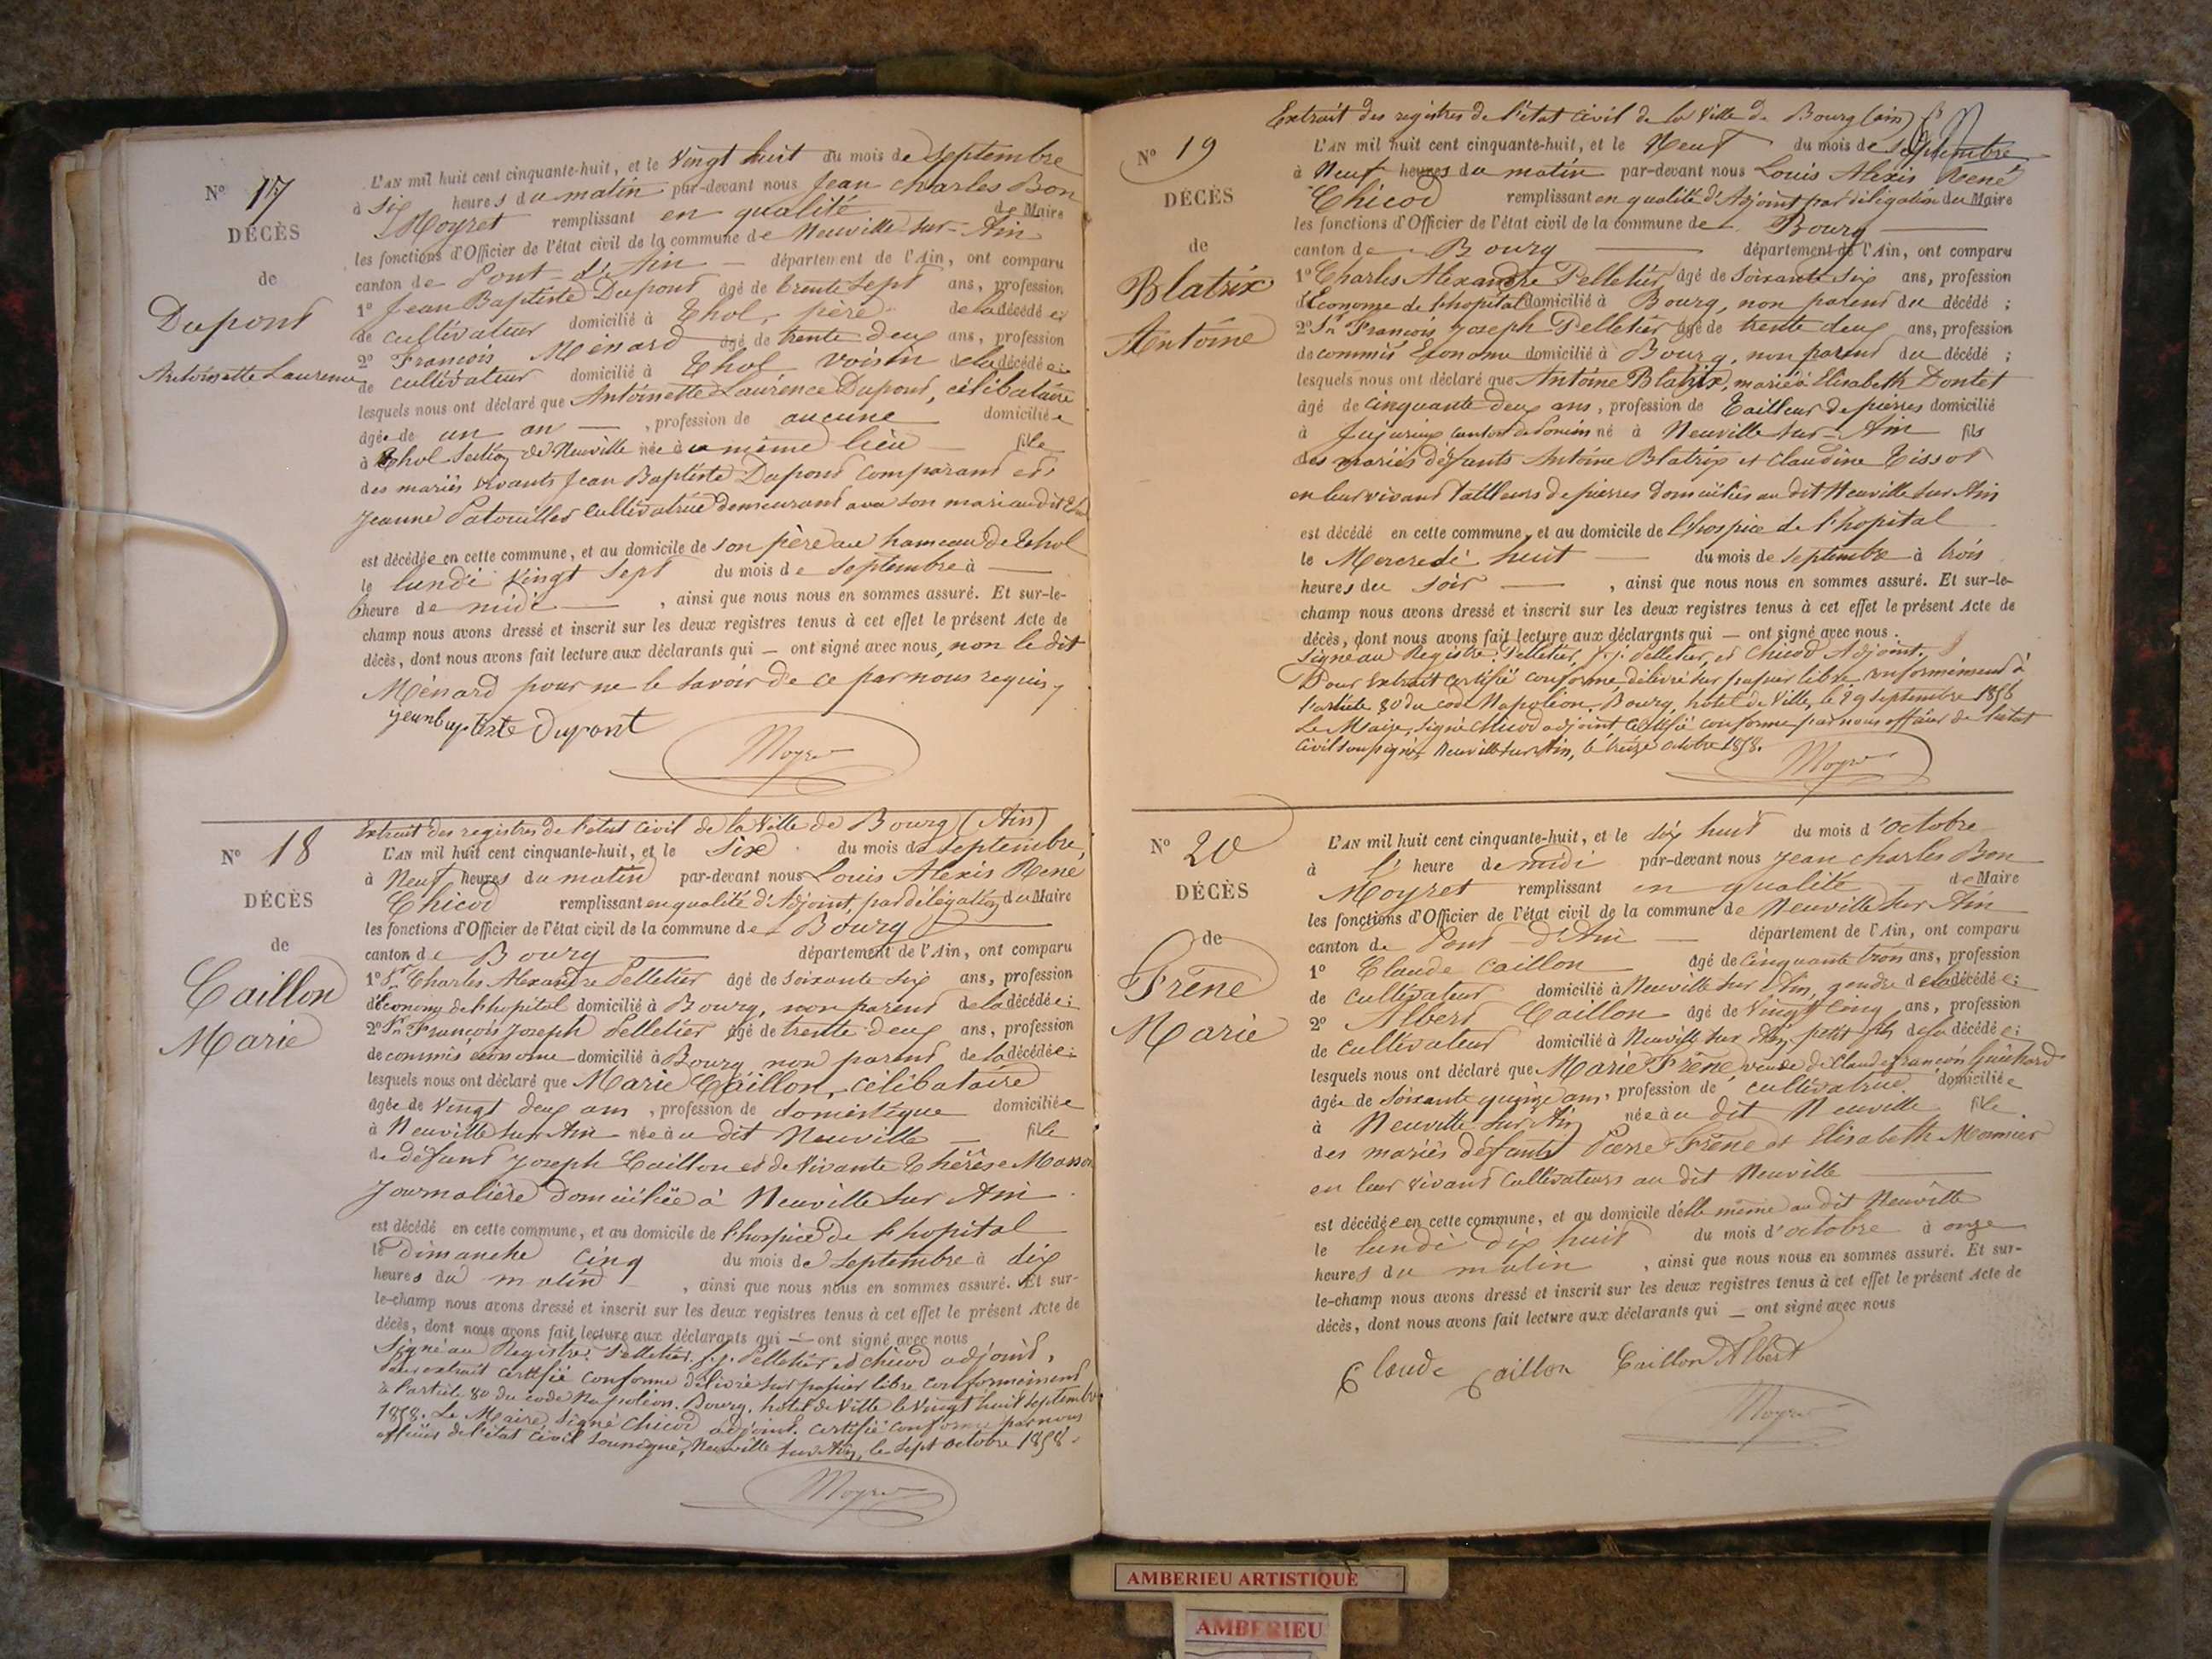 N° 17
DÉCÈS
de
Dupont
Antoinette Laurence
L'AN mil huit cent cinquante-huit, et le Vingt huit du mois de Septembre
à six heures du matin par-devant nous Jean Charles Bon
Moyret remplissant en qualité de Maire
les fonctions d'Officier de l'état civil de la commune de Neuville sur-Ain
canton de Pont-d'Ain département de l'Ain, ont comparu
1° Jean Baptiste Dupont âgé de trente sept ans, profession
de cultivateur domicilié à Thol, père de la décédée;
2° François Ménard âgé de trente deux ans, profession
de cultivateur domicilié à Thol voisin de la décédée;
lesquels nous ont déclaré que Antoinette Laurence Dupont, célibataire
âgée de un an, profession de aucune domiciliée
à Thol Section de Neuville née au même lieu fille
des mariés vivants Jean Baptiste Dupont comparant et
Jeanne Patouillet cultivatrice demeurant avec son mari audit Thol
est décédée en cette commune, et au domicile de son père au hameau de Thol
le lundi vingt sept du mois de septembre à
heure de midi, ainsi que nous nous en sommes assuré. Et sur-le-
champ nous avons dressé et inscrit sur les deux registres tenus à cet effet le présent Acte de
décès, dont nous avons fait lecture aux déclarants qui — ont signé avec nous, non le dit
Ménard pour ne le savoir de ce par nous requis,
Dupont
Moyret
N° 18
DÉCÈS
de
Caillon
Marie
Extrait des registres de l'état civil de la Ville de Bourg (Ain)
L'AN mil huit cent cinquante-huit, et le six du mois de septembre,
à Neuf heures du matin par-devant nous Louis Alexis René
Chicod remplissant en qualité d'Adjoint, par délégation du Maire
les fonctions d'Officier de l'état civil de la commune de Bourg
canton de Bourg département de l'Ain, ont comparu
1° Sr Charles Alexandre Pelletier âgé de soixante six ans, profession
d'Econome de l'hopital domicilié à Bourg, non parent de la décédée;
2° Sr François Joseph Pelletier âgé de trente deux ans, profession
de commis économe domicilié à Bourg non parent de la décédée;
lesquels nous ont déclaré que Marie Caillon, célibataire
âgée de vingt deux ans, profession de domestique domiciliée
à Neuville sur Ain née au dit Neuville fille
de défunt Joseph Caillon et de vivante Thérèse Masson
Journalière domiciliée à Neuville sur Ain
est décédé en cette commune, et au domicile de l'hospice de l'hopital
le Dimanche cinq du mois de septembre à dix
heures du matin, ainsi que nous nous en sommes assuré. Et sur-
le-champ nous avons dressé et inscrit sur les deux registres tenus à cet effet le présent Acte de
décès, dont nous avons fait lecture aux déclarants qui — ont signé avec nous
Signé au Registre: Pelletier, f. j. Pelletier et Chicod adjoint,
Pour extrait certifié conforme délivré sur papier libre conformément
à l'article 80 du code Napoléon. Bourg, hotel de Ville le vingt huit septembre
1858. Le Maire, signé Chicod adjoint. certifié conforme par nous
officier de l'état civil soussigné, Neuville sur Ain, le sept octobre 1858.
Moyret
N° 19
DÉCÈS
de
Blatrix
Antoine
Extrait des registres de l'état civil de la Ville de Bourg (ain)
L'AN mil huit cent cinquante-huit, et le Neuf du mois de septembre
à Neuf heures du matin par-devant nous Louis Alexis René
Chicod remplissant en qualité d'Adjoint par délégation du Maire
les fonctions d'Officier de l'état civil de la commune de Bourg
canton de Bourg département de l'Ain, ont comparu
1° Charles Alexandre Pelletier, âgé de soixante six ans, profession
d'Econome de l'hopital domicilié à Bourg, non parent du décédé;
2° Sr François Joseph Pelletier âgé de trente deux ans, profession
de commis Econome domicilié à Bourg, non parent du décédé;
lesquels nous ont déclaré que Antoine Blatrix, marié à Elisabeth Dontet
âgé de cinquante deux ans, profession de Tailleur de pierres domicilié
à Jujurieux canton de Poncin né à Neuville sur-Ain fils
des mariés défunts Antoine Blatrix et Claudine Tissot
en leur vivant tailleurs de pierres domiciliés au dit Neuville sur Ain
est décédé en cette commune, et au domicile de l'hospice de l'hopital
le Mercredi huit du mois de septembre à trois
heures du soir, ainsi que nous nous en sommes assuré. Et sur-le-
champ nous avons dressé et inscrit sur les deux registres tenus à cet effet le présent Acte de
décès, dont nous avons fait lecture aux déclarants qui — ont signé avec nous.
Signé au Registre: Pelletier, f. j. Pelletier, et Chicod Adjoint.
Pour extrait certifié conforme, délivré sur papier libre conformément à
l'article 80 du code Napoléon. Bourg, hôtel de Ville, le 29 septembre 1858
Le Maire, signé Chicod adjoint, certifié conforme par nous officier de l'état
civil soussigné, Neuville sur Ain, le treize octobre 1858.
Moyret
N° 20
DÉCÈS
de
Frêne
Marie
L'AN mil huit cent cinquante-huit, et le dix huit du mois d'octobre
à l'heure de midi par-devant nous Jean Charles Bon
Moyret remplissant en qualité de Maire
les fonctions d'Officier de l'état civil de la commune de Neuville sur Ain
canton de Pont-d'Ain département de l'Ain, ont comparu
1° Claude Caillon âgé de cinquante trois ans, profession
de cultivateur domicilié à Neuville sur Ain, gendre de la décédée;
2° Albert Caillon âgé de vingt cinq ans, profession
de cultivateur domicilié à Neuville sur Ain, petit fils de la décédée;
lesquels nous ont déclaré que Marie Frêne, veuve de Claude françois Guichard
âgée de soixante quinze ans, profession de cultivatrice domiciliée
à Neuville sur Ain née au dit Neuville fille
des mariés défunts Pierre Frêne et Elisabeth Monnier
en leur vivant cultivateurs au dit Neuville
est décédée en cette commune, et au domicile d'elle même au dit Neuville
le lundi dix huit du mois d'octobre à onze
heures du matin, ainsi que nous nous en sommes assuré. Et sur-
le-champ nous avons dressé et inscrit sur les deux registres tenus à cet effet le présent Acte de
décès, dont nous avons fait lecture aux déclarants qui — ont signé avec nous
Claude Caillon Caillon Albert
Moyret
AMBERIEU ARTISTIQUE
AMBERIEU